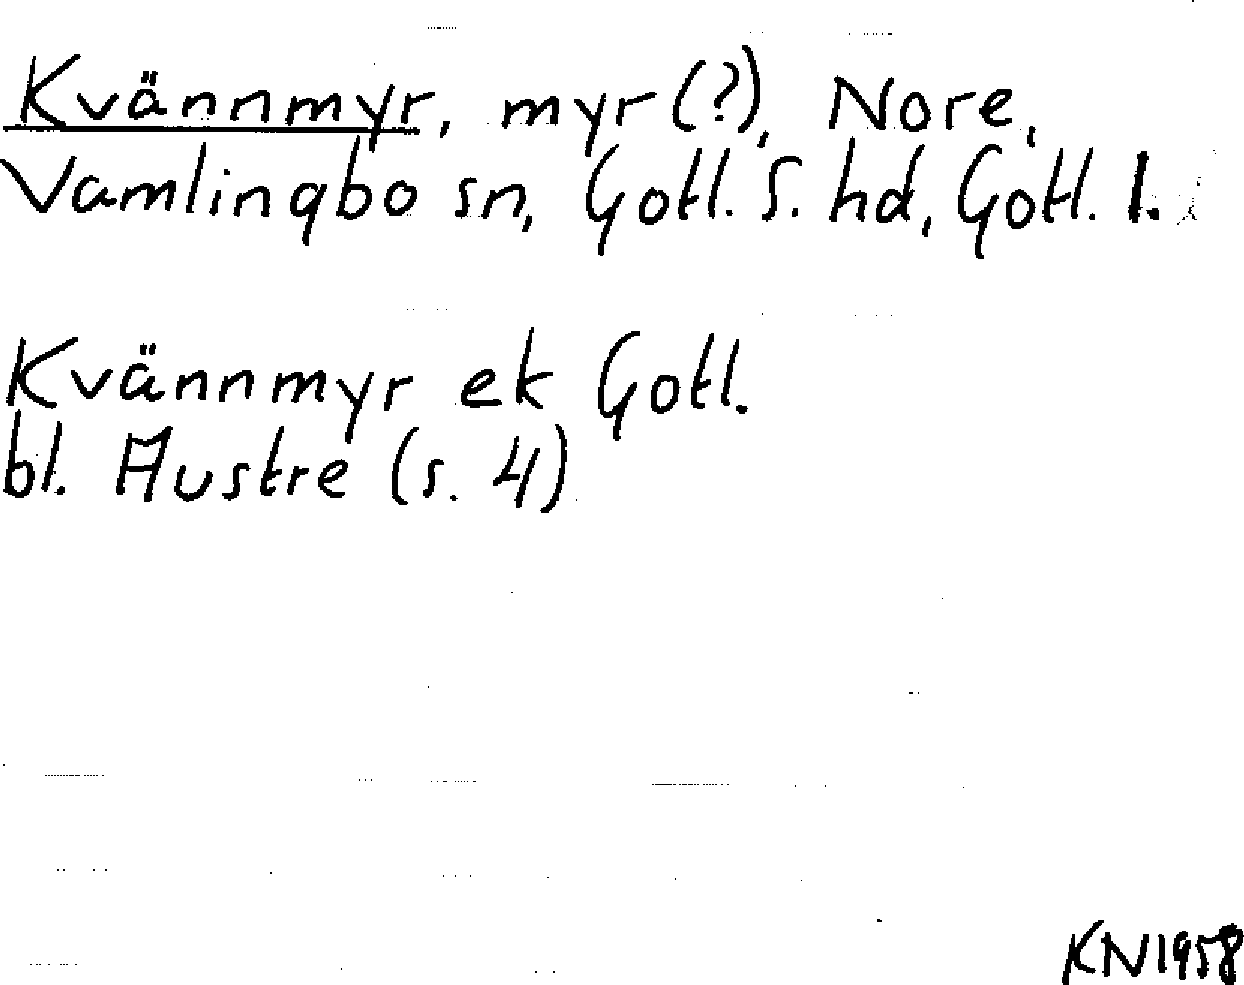 Kvännmyr, myr (?), Nore,
Vamlingbo sn, Gotl. S. hd, Gotl. l.
Kvännmyr ek Gotl.
bl. Austre (s. 4)
KN1958